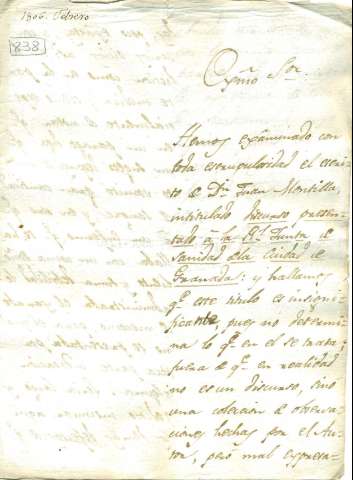 1806. Febrero
838
Exmõ Sor
Hemos exâminado con
toda escrupulosidad el escri-
to de Dn. Juan Montilla,
intitulado discurso presen-
tado à la Rl. Junta de
sanidad dela Ciudad de
Granada: y hallamos
qe. este titulo es insigni-
ficante, pues no determi-
na lo qe. en el se trata;
fuera de qe. en realidad
no es un discurso, sino
una coleccion de observa-
ciones hechas por el Au-
tor, pero mal expresa-